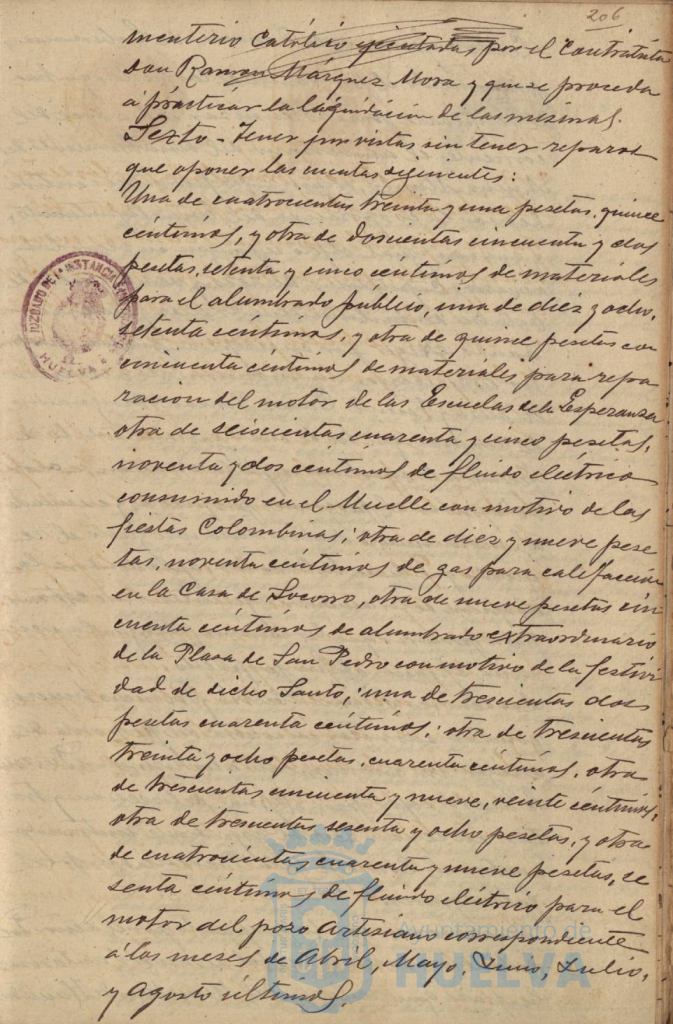 206
menterio Católico ejecutadas por el Contratista
Don Ramon Márquez Mora y que se proceda
á practicar la liquidación de las mismas.
Sexto - Tener por vistas sin tener reparos
que oponer las cuentas siguientes:
Una de cuatrocientas treinta y una pesetas, quince
céntimos, y otra de doscientas cincuenta y dos
pesetas, setenta y cinco céntimos de materiales
para el alumbrado público, una de diez y ocho,
setenta céntimos, y otra de quince pesetas con
cincuenta céntimos de materiales para repa
racion del motor de las Escuelas de la Esperanza
otra de seiscientas cuarenta y cinco pesetas,
noventa y dos centimos de fluido eléctrico
consumido en el Muelle con motivo de las
fiestas Colombinas; otra de diez y nueve pese
tas, noventa centimos de gas para calefacción
en la Casa de Socorro, otra de nueve pesetas cin
cuenta céntimos de alumbrado extraordinario
de la Plaza de San Pedro con motivo de la festivi
dad de dicho Santo; una de trescientas dos
pesetas cuarenta centimos; otra de trescientas
treinta y ocho pesetas, cuarenta centimos, otra
de trescientas cincuenta y nueve, veinte céntimos,
otra de trescientas sesenta y ocho pesetas, y otra
de cuatrocientas cuarenta y nueve pesetas, se
senta céntimos de fluido eléctrico para el
motor del pozo Artesiano correspondiente
á los meses de Abril, Mayo, Junio, Julio,
y Agosto últimos.
JUZGADO DE 1ª INSTANCIA
HUELVA
Ayuntamiento de
HUELVA